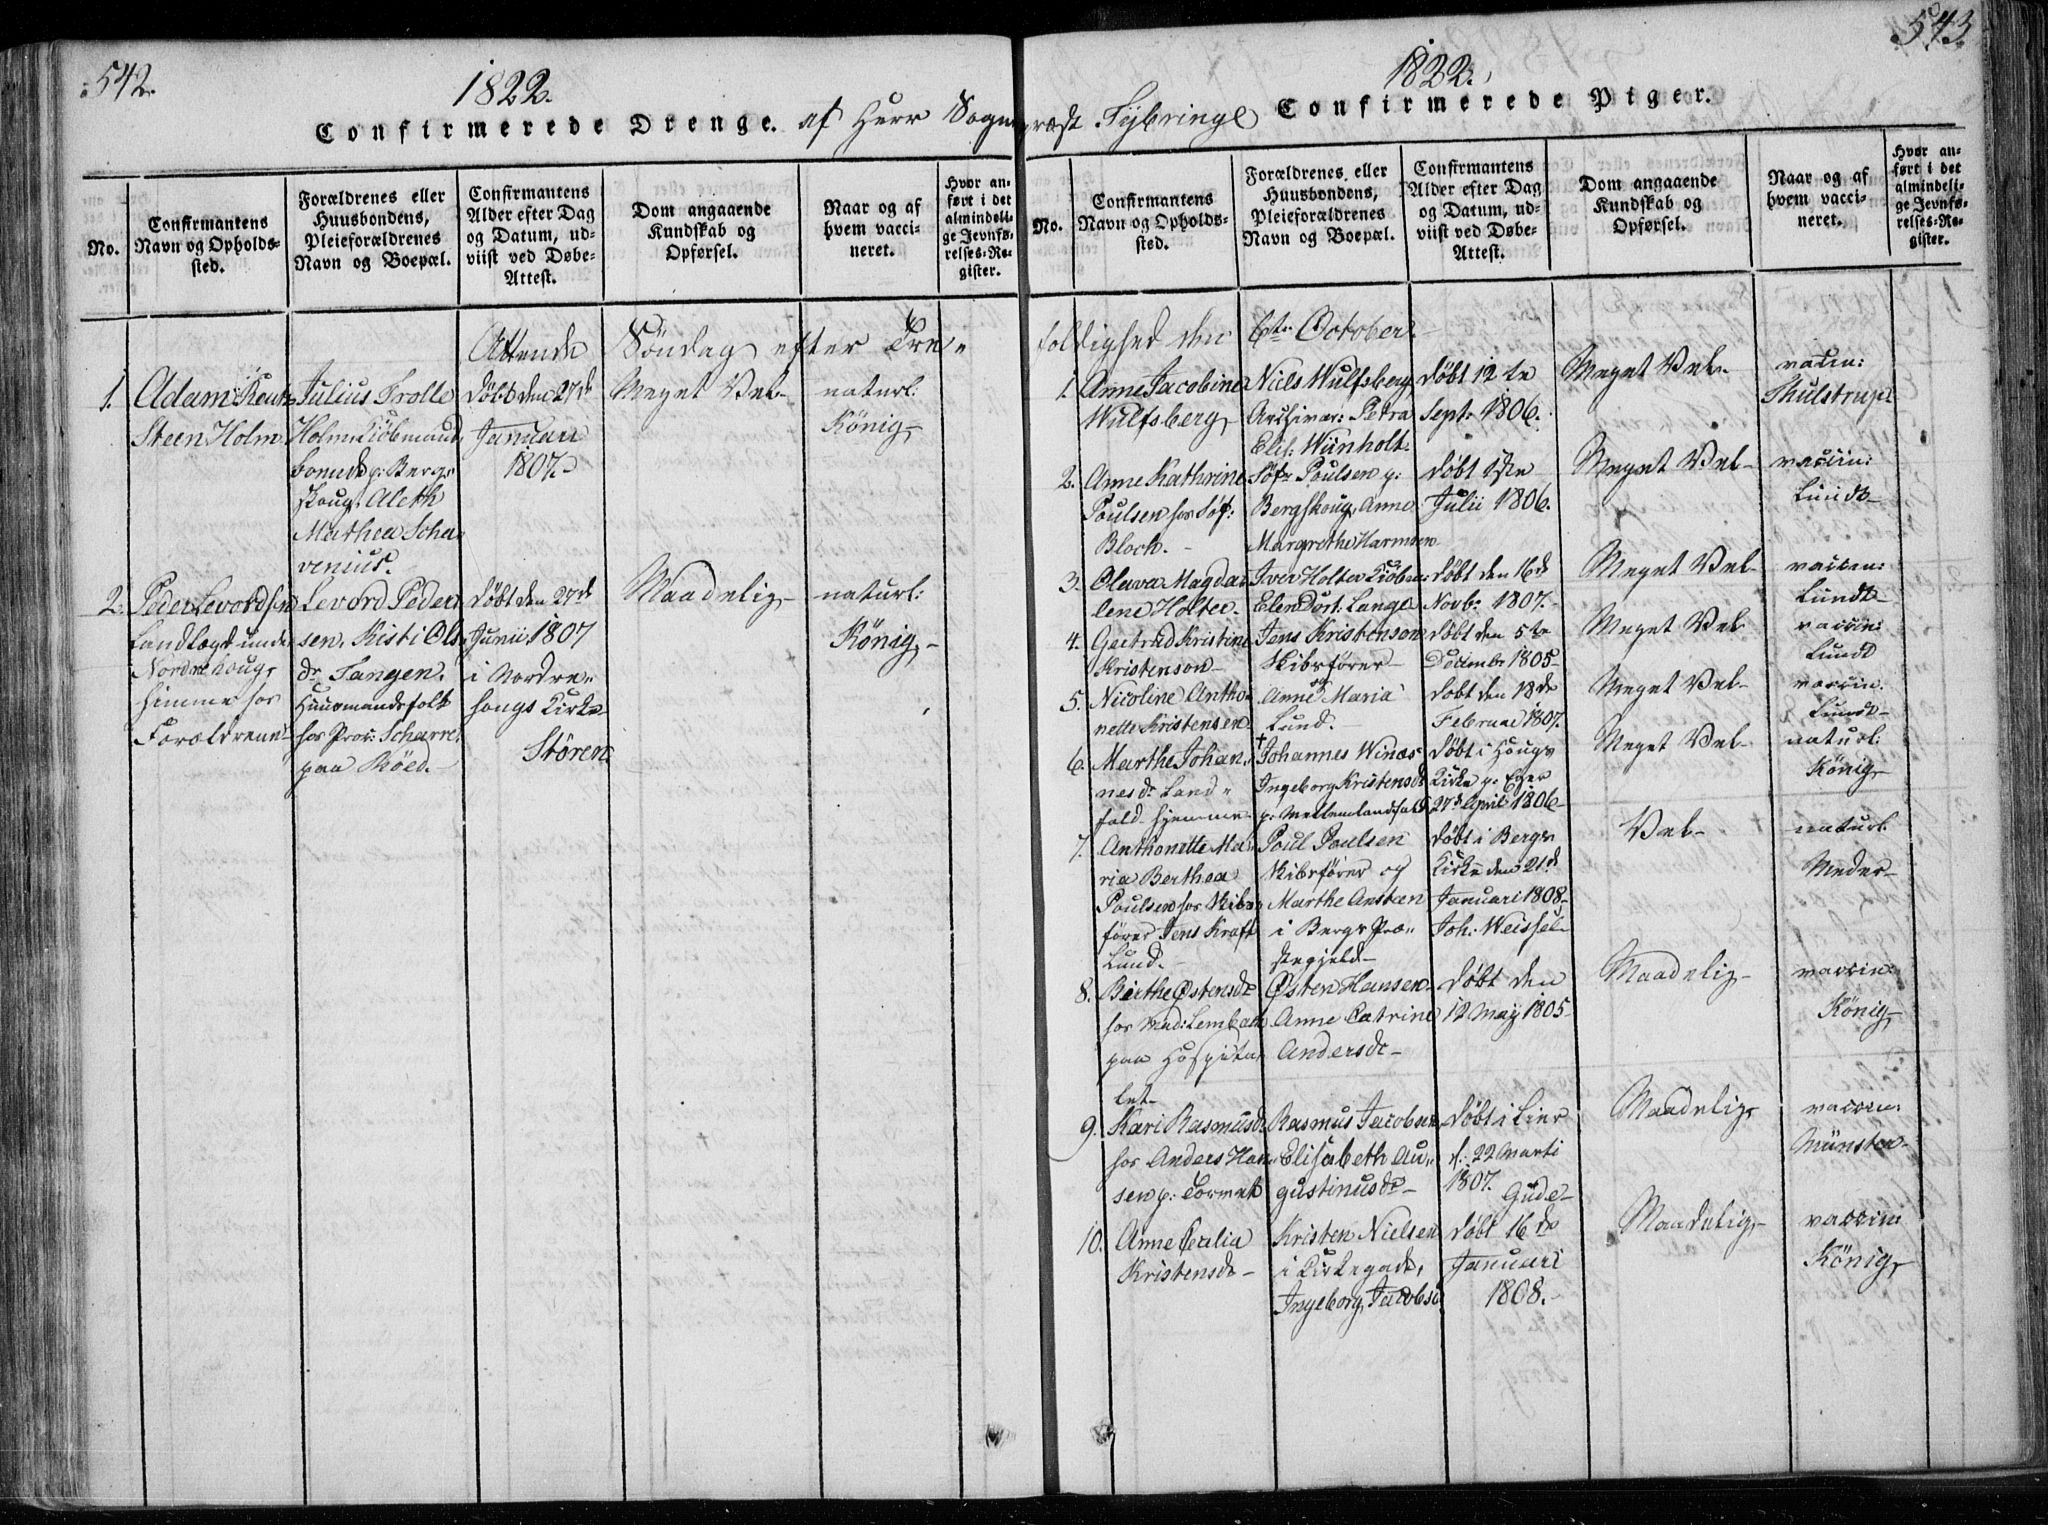 542.
1822.
Confirmerede Drenge. af Herr Sogne
No.
Confirmantens Navn og Opholds-sted.
Forældrenes eller Huusbondens, Pleieforældrenes Navn og Boepæl.
Confirmantens Alder efter Dag og Datum, ud-viist ved Døbe-Attest.
Dom angaaende Kundskab og Opførsel.
Naar og af hvem vacci-neret.
Hvor an-ført i det almindeli-ge Jevnfø-relses-Re-gister.
Attende Söndag efter Tre-
1. Adam
Steen Holm
Julius Trolle
Holm, Kiöbmand,
boende p: Berg
skoug, Aleth
Mathea Scha
venius.
Döbt den 27de
Januari
1807.
Meget Vel
naturl:
König
2. Peder Levordsen
Nordrehoug,
hjemme hos
Forældrene
Levord Peder
sen, Kisti Ols
dr Tangen.
Huusmandsfolk
hos Prov: Scharre
paa Röed.
döbt den 27de
Junii 1807
i Nordre
hougs Kirke
Stören
Maadelig
naturl:
König
543
1822.
præst Tybring Confirmerede Piger.
No.
Confirmantens Navn og Opholds-sted.
Forældrenes eller Huusbondens, Pleieforældrenes Navn og Boepæl.
Confirmantens Alder efter Dag og Datum, ud-viist ved Døbe-Attest.
Dom angaaende Kundskab og Opførsel.
Naar og af hvem vacci-neret.
Hvor an-ført i det almindeli-ge Jevnfø-relses-Re-gister.
foldighed den 6te October
1. Anne Jacobine
Wulfsberg
Niels Wulfsberg,
Archivar: Petra
Elis: Winholt
döbt 12te
Septr 1806.
Meget Vel
vacin:
Thulstrup
2. Anne Kathrine
Poulsen hos
Bloch.
Poulsen p:
Bergskoug, Anne
Margrethe Harmsen
döbt 1ste
Julii 1806.
Meget Vel
vaccin:
Lundt
3. Oleva Magda
lene Holter
Iver Holter Kiöbm:
Elen Dort: Lange
döbt den 16de
Novbr 1807.
Meget Vel
vaccin:
Lundt
4. Gertrud Kristine
Kristenson
Jens Kristenson
Skibsförer
og
döbt den 5te
December 1805
Meget Vel
vaccin:
Lundt
5. Nicoline Antho
nette Kristensen
Anne Maria
Lund.
döbt den 18de
Februar 1807.
Meget Vel
vaccin:
Lundt
6. Marthe Johan
nesdr Land
fald hjemme
† Johannes Winæs
Ingeborg Kristensdr
p: Mellemlandfald
döbt i Hougs
Kirke p: Eger
27de April 1806
Meget Vel
naturl:
König
7. Anthonette Ma
ria Berthea
Poulsen hos Skibs
förer Jens Kraft
Lund.
Poul Poulsen
Skibsförer og
Marthe
i Bergs Præ
stegjeld
döbt i Bergs
Kirke den 21de
Januari 1808
Joh. Weissel
Vel
naturl.
Meder
8. Birthe Østensdr
hos Mad: Lembach
paa Hospita
let
Østen Hansen
Anne Catrine
Andersdr
döbt den
12 May 1805
Maadelig
vaccin:
König
9. Kari Rasmusdr
hos Anders Han
sen p: Tormet
Rasmus Jacobsen
Elisabeth Au
gustinusdr
döbt i Lier
d: 22 Marti
1807.
Gude
Maadelig
vaccin:
Münster
10. Anne Cecilia
Kristensdr
Kristen Nielsen
i Kirkegade,
Ingeborg Jacobsd
döbt 16de
Januari
1808.
Maadelig
vaccin:
König